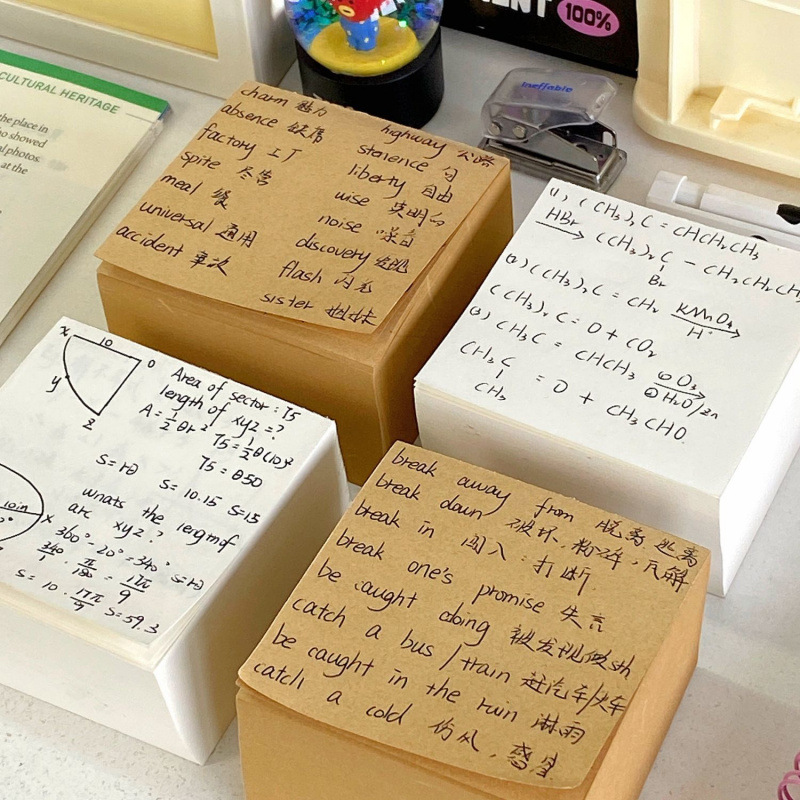 CULTURAL HERITAGE
the place in
who showed
al photos.
at the
MENT
100%
Ineffable
charm 魅力
absence 缺席
factory 工厂
spite 尽管
meal 餐
universal 通用
accident 事次
highway 公路
stenence 句
liberty 自由
wise 英明的
noise 噪音
discovery 发现
flash 闪光
sister 姐妹
(1) (CH3)2C = CHCH2CH3
HBr
(CH3)2C - CH2CH2CH
Br
(2) (CH3)2C = CH2 KMnO4
H+
(CH3)2C = O + CO2
(3) CH3C = CHCH3 ① O3
② H2O/Zn
CH3
CH3C = O + CH3CHO
x 10 O
y
z
Area of sector: 75
length of xyz = ?
A = 1/2 θr²
75 = 1/2 θ(10)²
75 = θ50
S = rθ
S = 10.15 S=15
whats the length of
arc xyz?
360° - 20° = 340° S=rθ
340/1 · π/180 = 17π/9
S = 10 · 17π/9 S=59.3
10in
x
break away from 脱离 逃离
break down 破坏,粉碎,瓦解
break in 闯入:打断
break one's promise 失言
be caught doing 被发现做sth
catch a bus/train 赶汽车/火车
be caught in the rain 淋雨
catch a cold 伤风,感冒